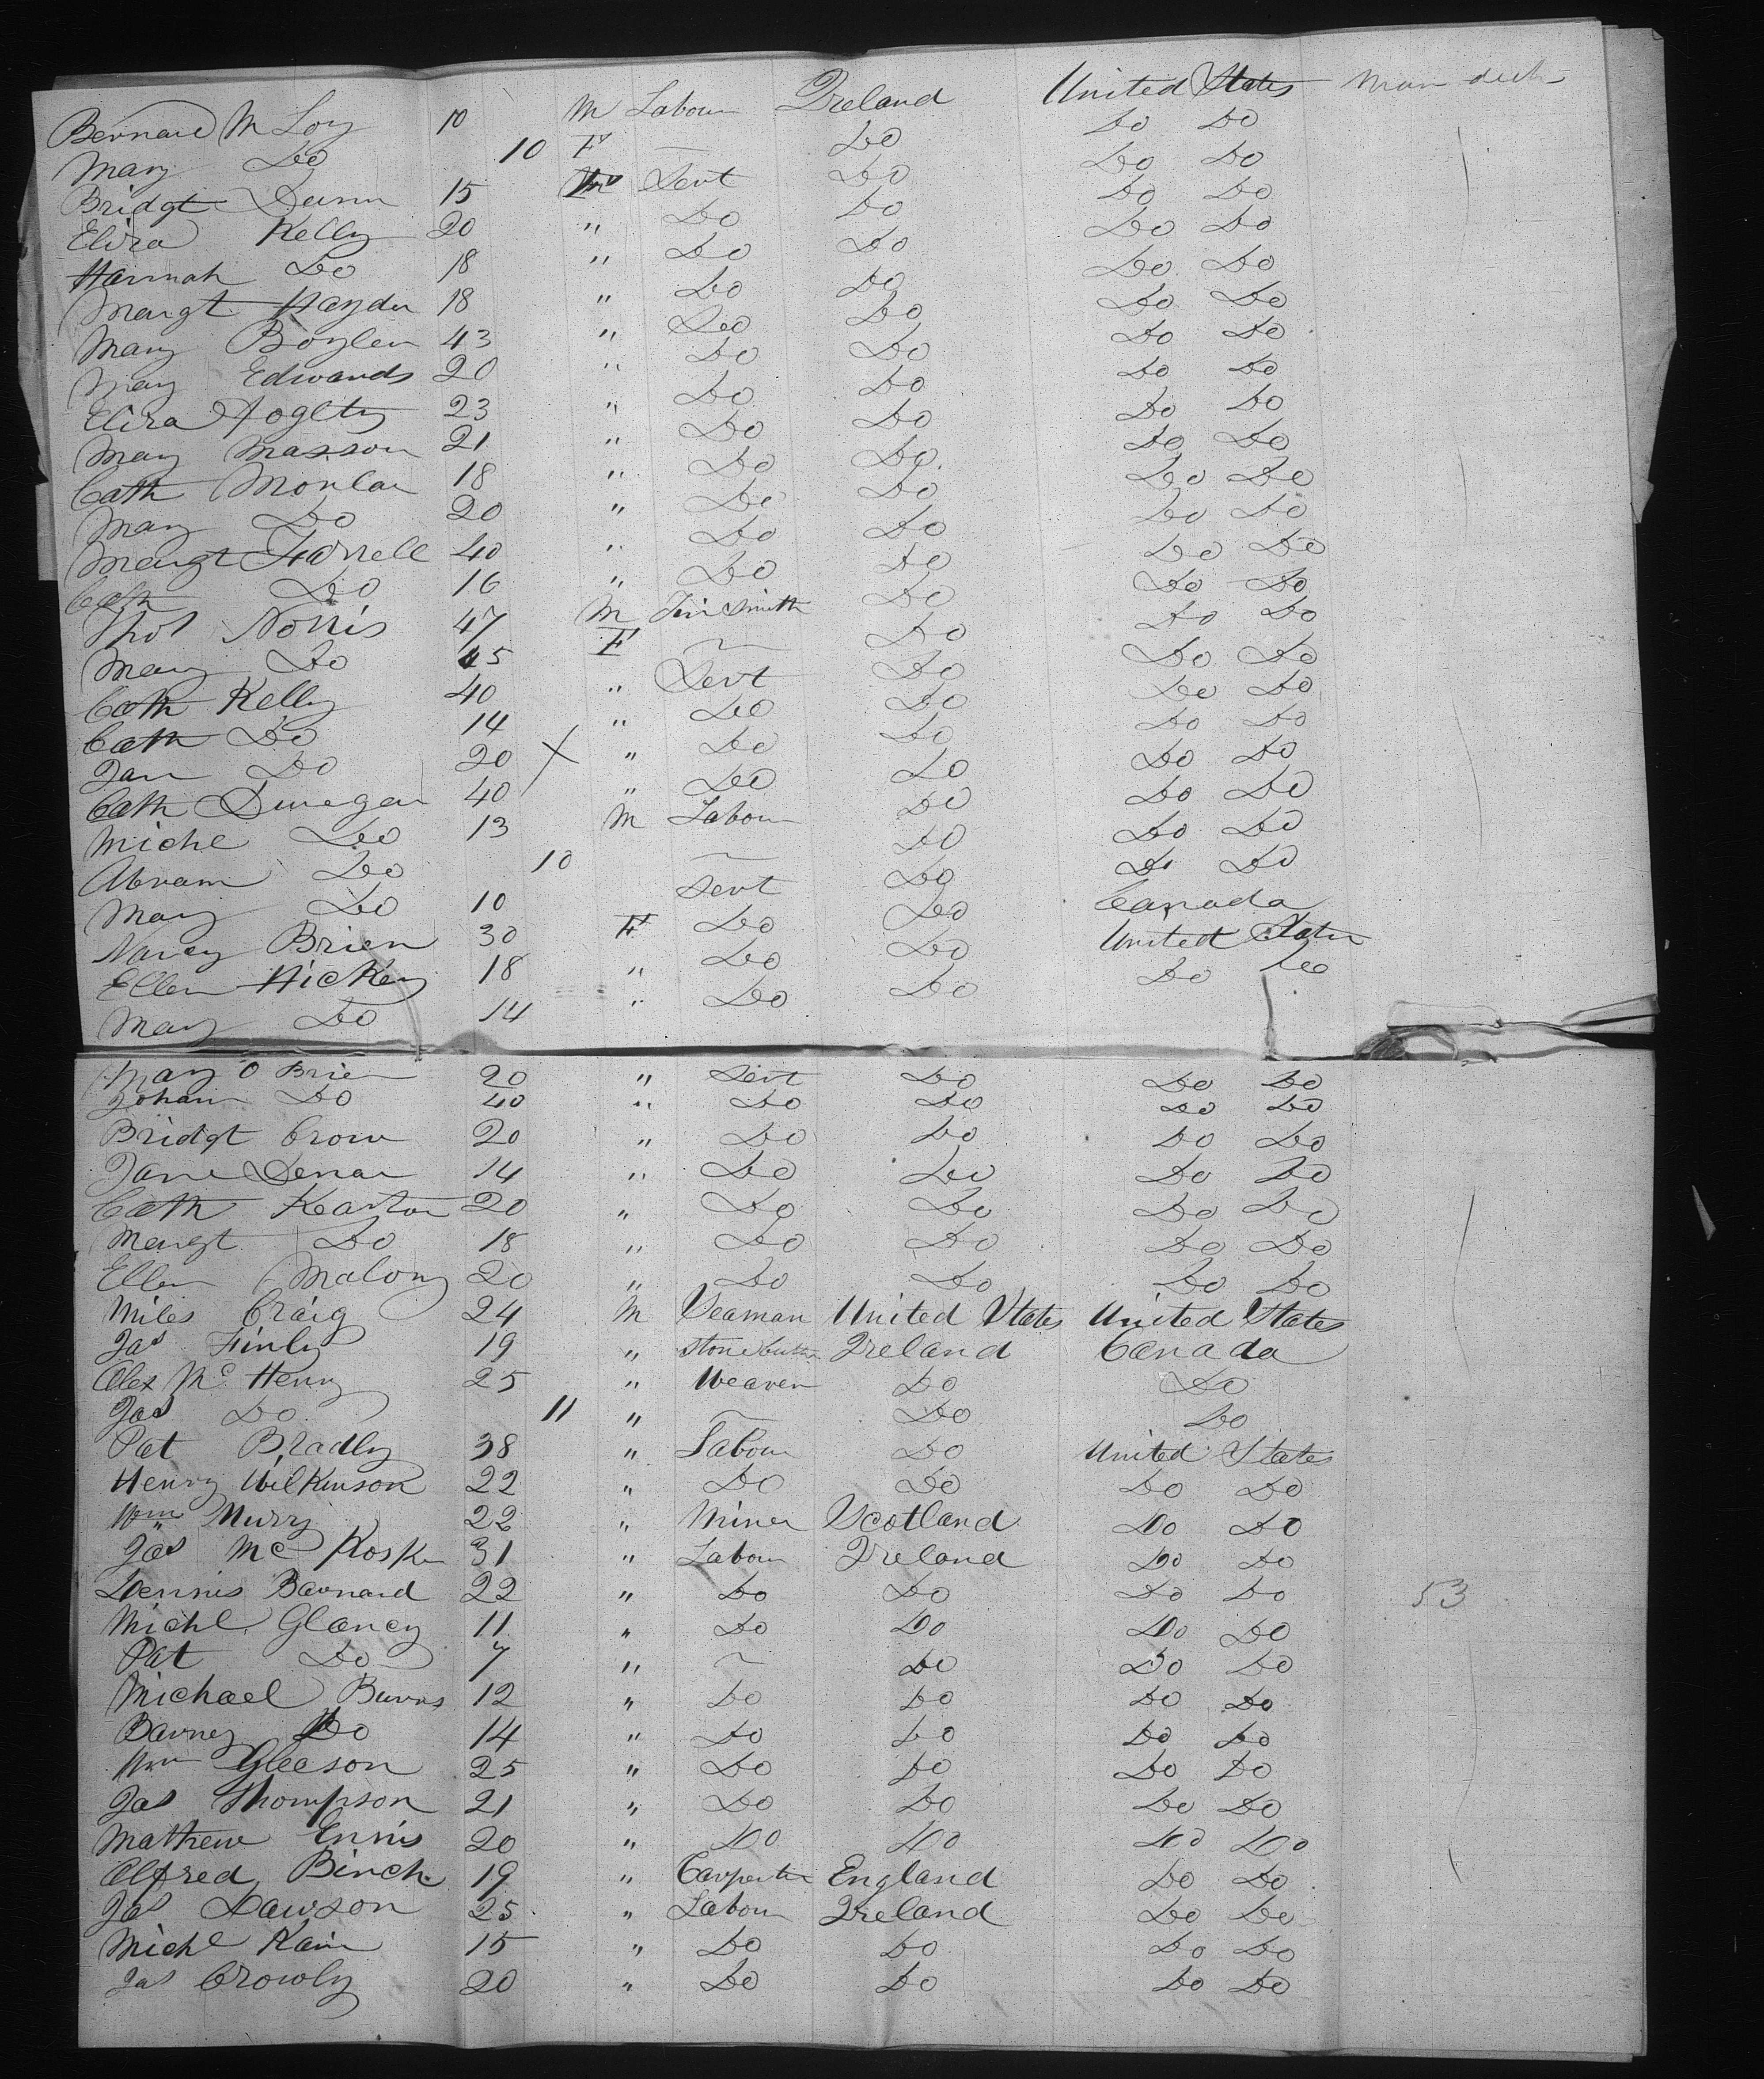 Bernard McLoy 10 M Labour Ireland United States Main deck
Mary Do 10 F — Do Do Do
Bridgt Dunn 15 F Servt Do Do Do
Eliza Kelly 20 " Do Do Do Do
Hannah Do 18 " Do Do Do Do
Margt Hayden 18 " Do Do Do Do
Mary Boylen 43 " Do Do Do Do
Mary Edwards 20 " Do Do Do Do
Eliza 23 " Do Do Do Do
Mary Masson 21 " Do Do Do Do
Cath 18 " Do Do Do Do
Mary Do 20 " Do Do Do Do
Margt Farrell 40 " Do Do Do Do
Cath Do 16 " Do Do Do Do
Thos Norris 47 M Tin Smith Do Do Do
Mary Do 45 F — Do Do Do
Cath Kelly 40 " Servt Do Do Do
Cath Do 14 " Do Do Do Do
Jane Do 20 X " Do Do Do Do
Cath Dunegan 40 " Do Do Do Do
Michl Do 13 M Labour Do Do Do
Abram Do 10 — Do Do Do
Mary Do 10 Servt Do Do Do
Nancy Brien 30 F Do Do Canada
Ellen Hickey 18 " Do Do United States
Mary Do 14 " Do Do Do Do
Mary O Brien 20 " Servt Do Do Do
Johann Do 40 " Do Do Do Do
Bridgt Crow 20 " Do Do Do Do
Jane 14 " Do Do Do Do
Cath Kearton 20 " Do Do Do Do
Margt Do 18 " Do Do Do Do
Ellen Malony 20 " Do Do Do Do
Miles Craig 24 M Seaman United States United States
Jas Finly 19 " Stone Cutter Ireland Canada
Alex Mc Henry 25 " Weaver Do Do
Jas Do 11 " — Do Do
Pat Bradly 38 " Labour Do United States
Henry Wilkinson 22 " Do Do Do Do
Wm Murry 22 " Miner Scotland Do Do
Jas Mc Kosker 31 " Labour Ireland Do Do
Dennis Barnard 22 " Do Do Do Do 53
Michl Glancy 11 " Do Do Do Do
Pat Do 7 " — Do Do Do
Michael Burns 12 " Do Do Do Do
Barney Do 14 " Do Do Do Do
Wm Gleeson 25 " Do Do Do Do
Jas Thompson 21 " Do Do Do Do
Mathew Ennis 20 " Do Do Do Do
Alfred Binch 19 " Carpenter England Do Do
Jas Dawson 25 " Labour Ireland Do Do
Michl Kain 15 " Do Do Do Do
Jas Crowly 20 " Do Do Do Do